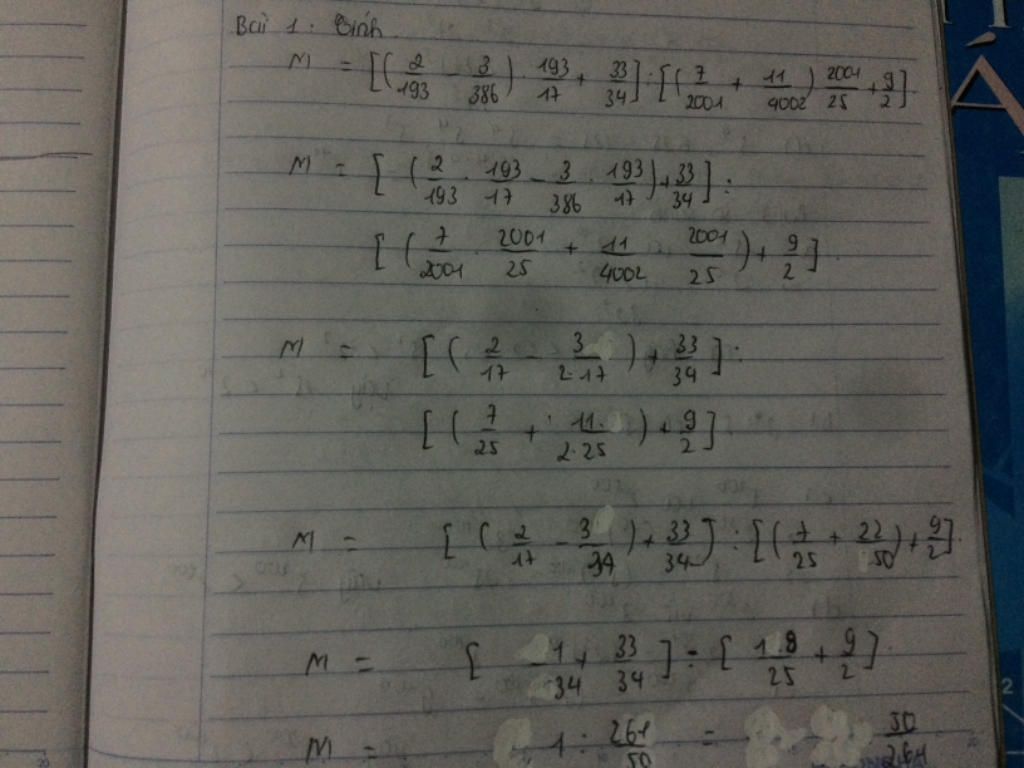 Bài 1 : Tính
M = [(2/193 - 3/386) . 193/17 + 33/34] : [(7/2001 + 11/4002) 2001/25 + 9/2]
M = [(2/193 . 193/17 - 3/386 . 193/17) + 33/34] :
[(7/2001 . 2001/25 + 11/4002 2001/25) + 9/2]
M = [(2/17 - 3/2.17) + 33/34] :
[(7/25 + 11./2.25) + 9/2]
M = [(2/17 - 3/34) + 33/34] : [(7/25 + 22/50) + 9/2].
M = [1/34 + 33/34] : [18/25 + 9/2]
M = 1 : 261/50 = 50/261